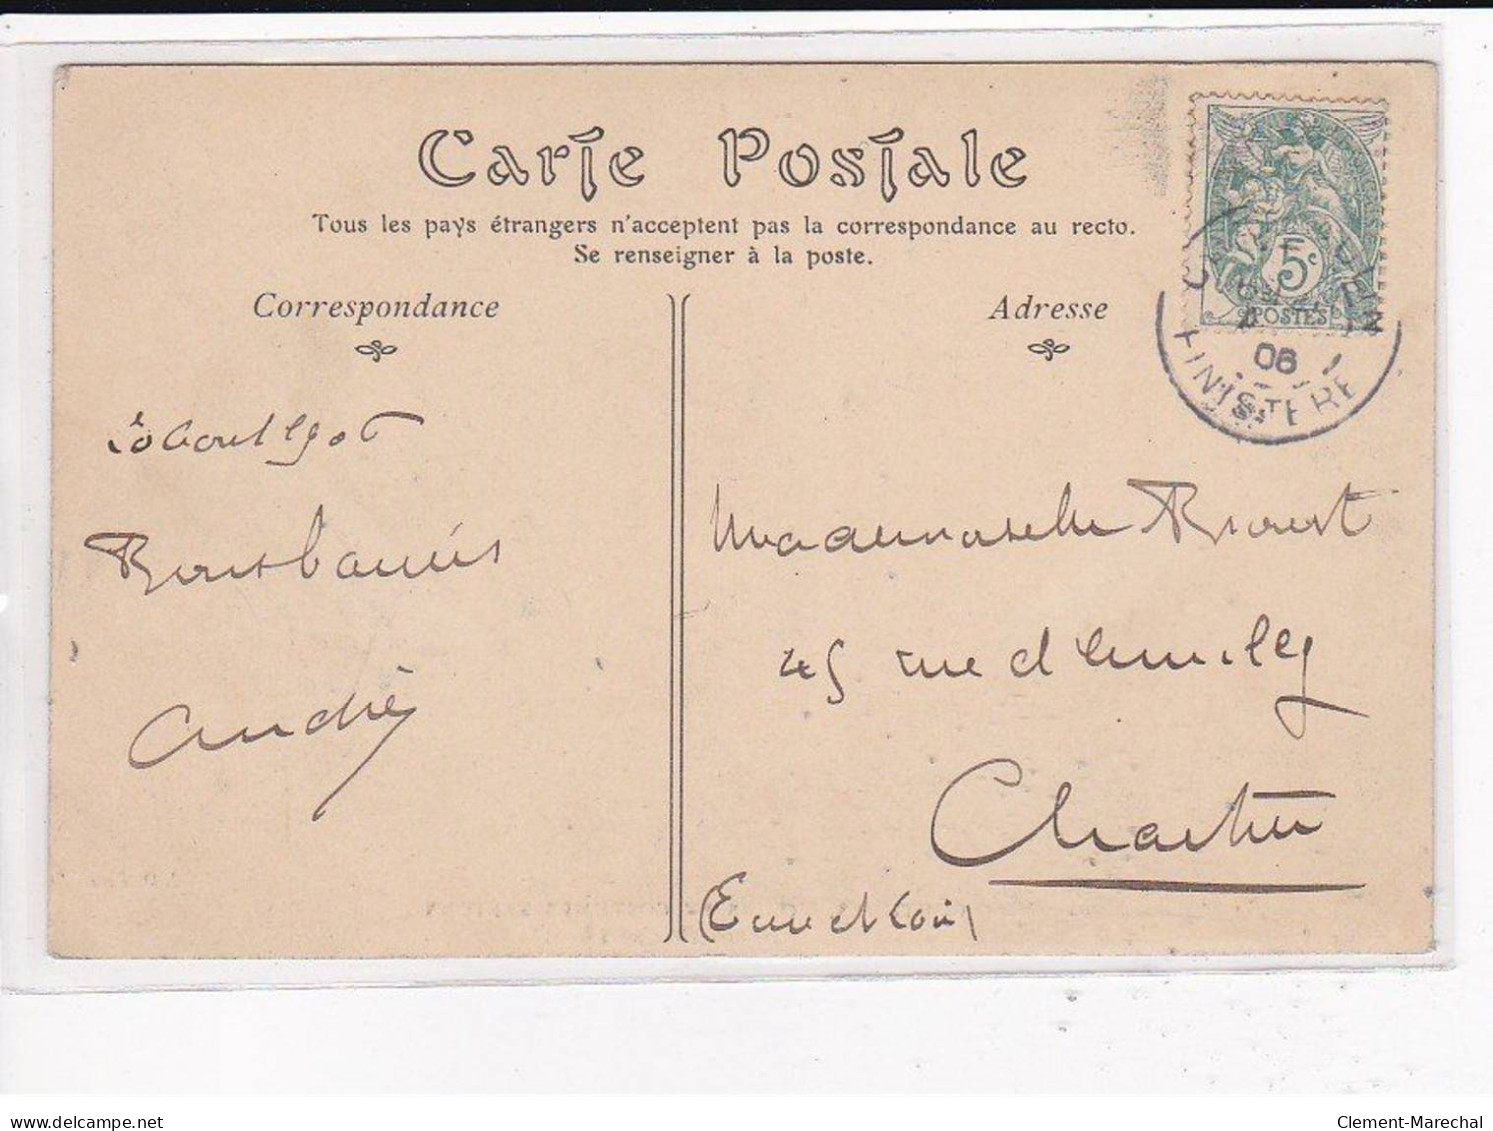 Carte Postale
Tous les pays étrangers n'acceptent pas la correspondance au recto.
Se renseigner à la poste.
Correspondance
Adresse
5c
POSTES
06
FINISTERE
Août 1906
Bons baisers
André
Mademoiselle
45 rue d
Chartres
(Eure et Loir)
delcampe.net
Clement-Marechal